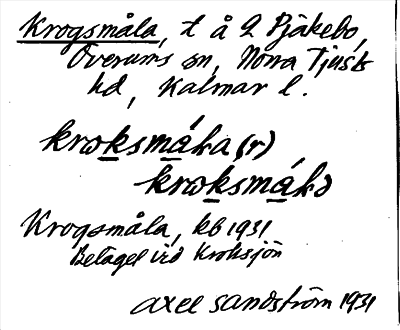 Krogsmåla, t å 2 Pjäkebo,
Överums sn, Norra Tjusts
hd, Kalmar l.
krωksmáλa(r)
krωksmáλə
Krogsmåla, kb 1931
Beläget vid Kroksjön
Axel Sandström 1931